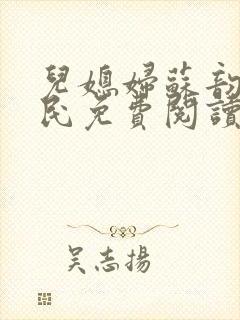 兒媳婦蘇韵
民免費閱讀
吴志揚